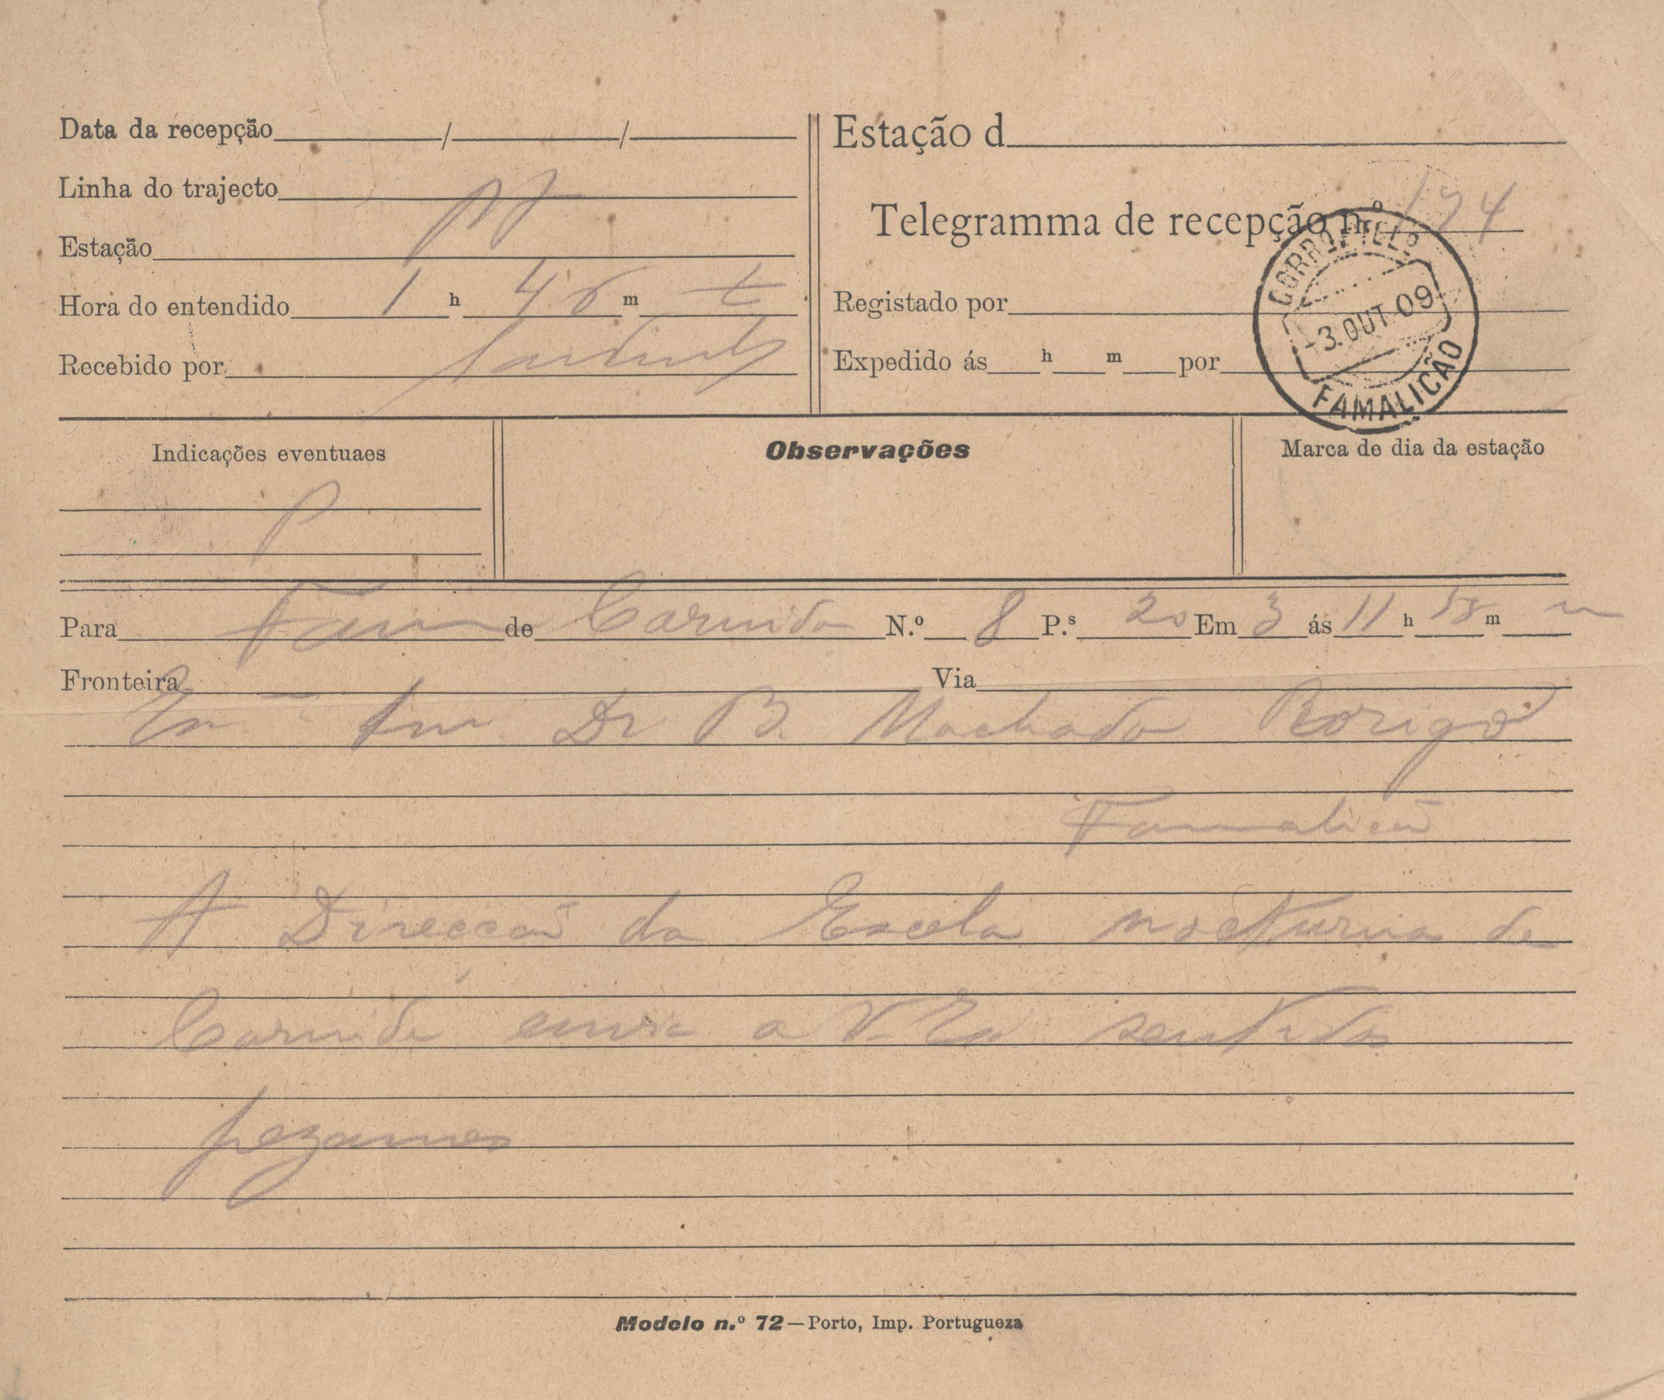 Data da recepção / /
Linha do trajecto
Estação
Hora do entendido 1 h 46 m t
Recebido por
Estação d
Telegramma de recepção n.º 174
Registado por
Expedido ás h m por
CORRO E TELLO
-3.OUT.09
FAMALICÃO
Indicações eventuaes
P
Observações
Marca de dia da estação
Para Fam de Carnide N.º 8 P.s 20 Em 3 ás 11 h 58 m m
Fronteira Via
Dr B. Machado
Famalicão
A Direcção da Escola nocturna de
Carnide envia a V. Ex sentidos
pezames
Modelo n.º 72—Porto, Imp. Portugueza